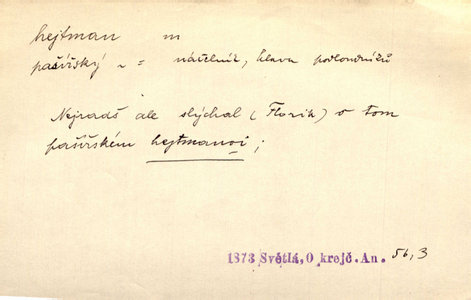 hejtman m
pašířský ~ = náčelník, hlava podloudníků
Nejradš ale slýchal (Florik) o tom
pašířském hejtmanoi ;
1873 Světlá, O krejč. An. 56, 3